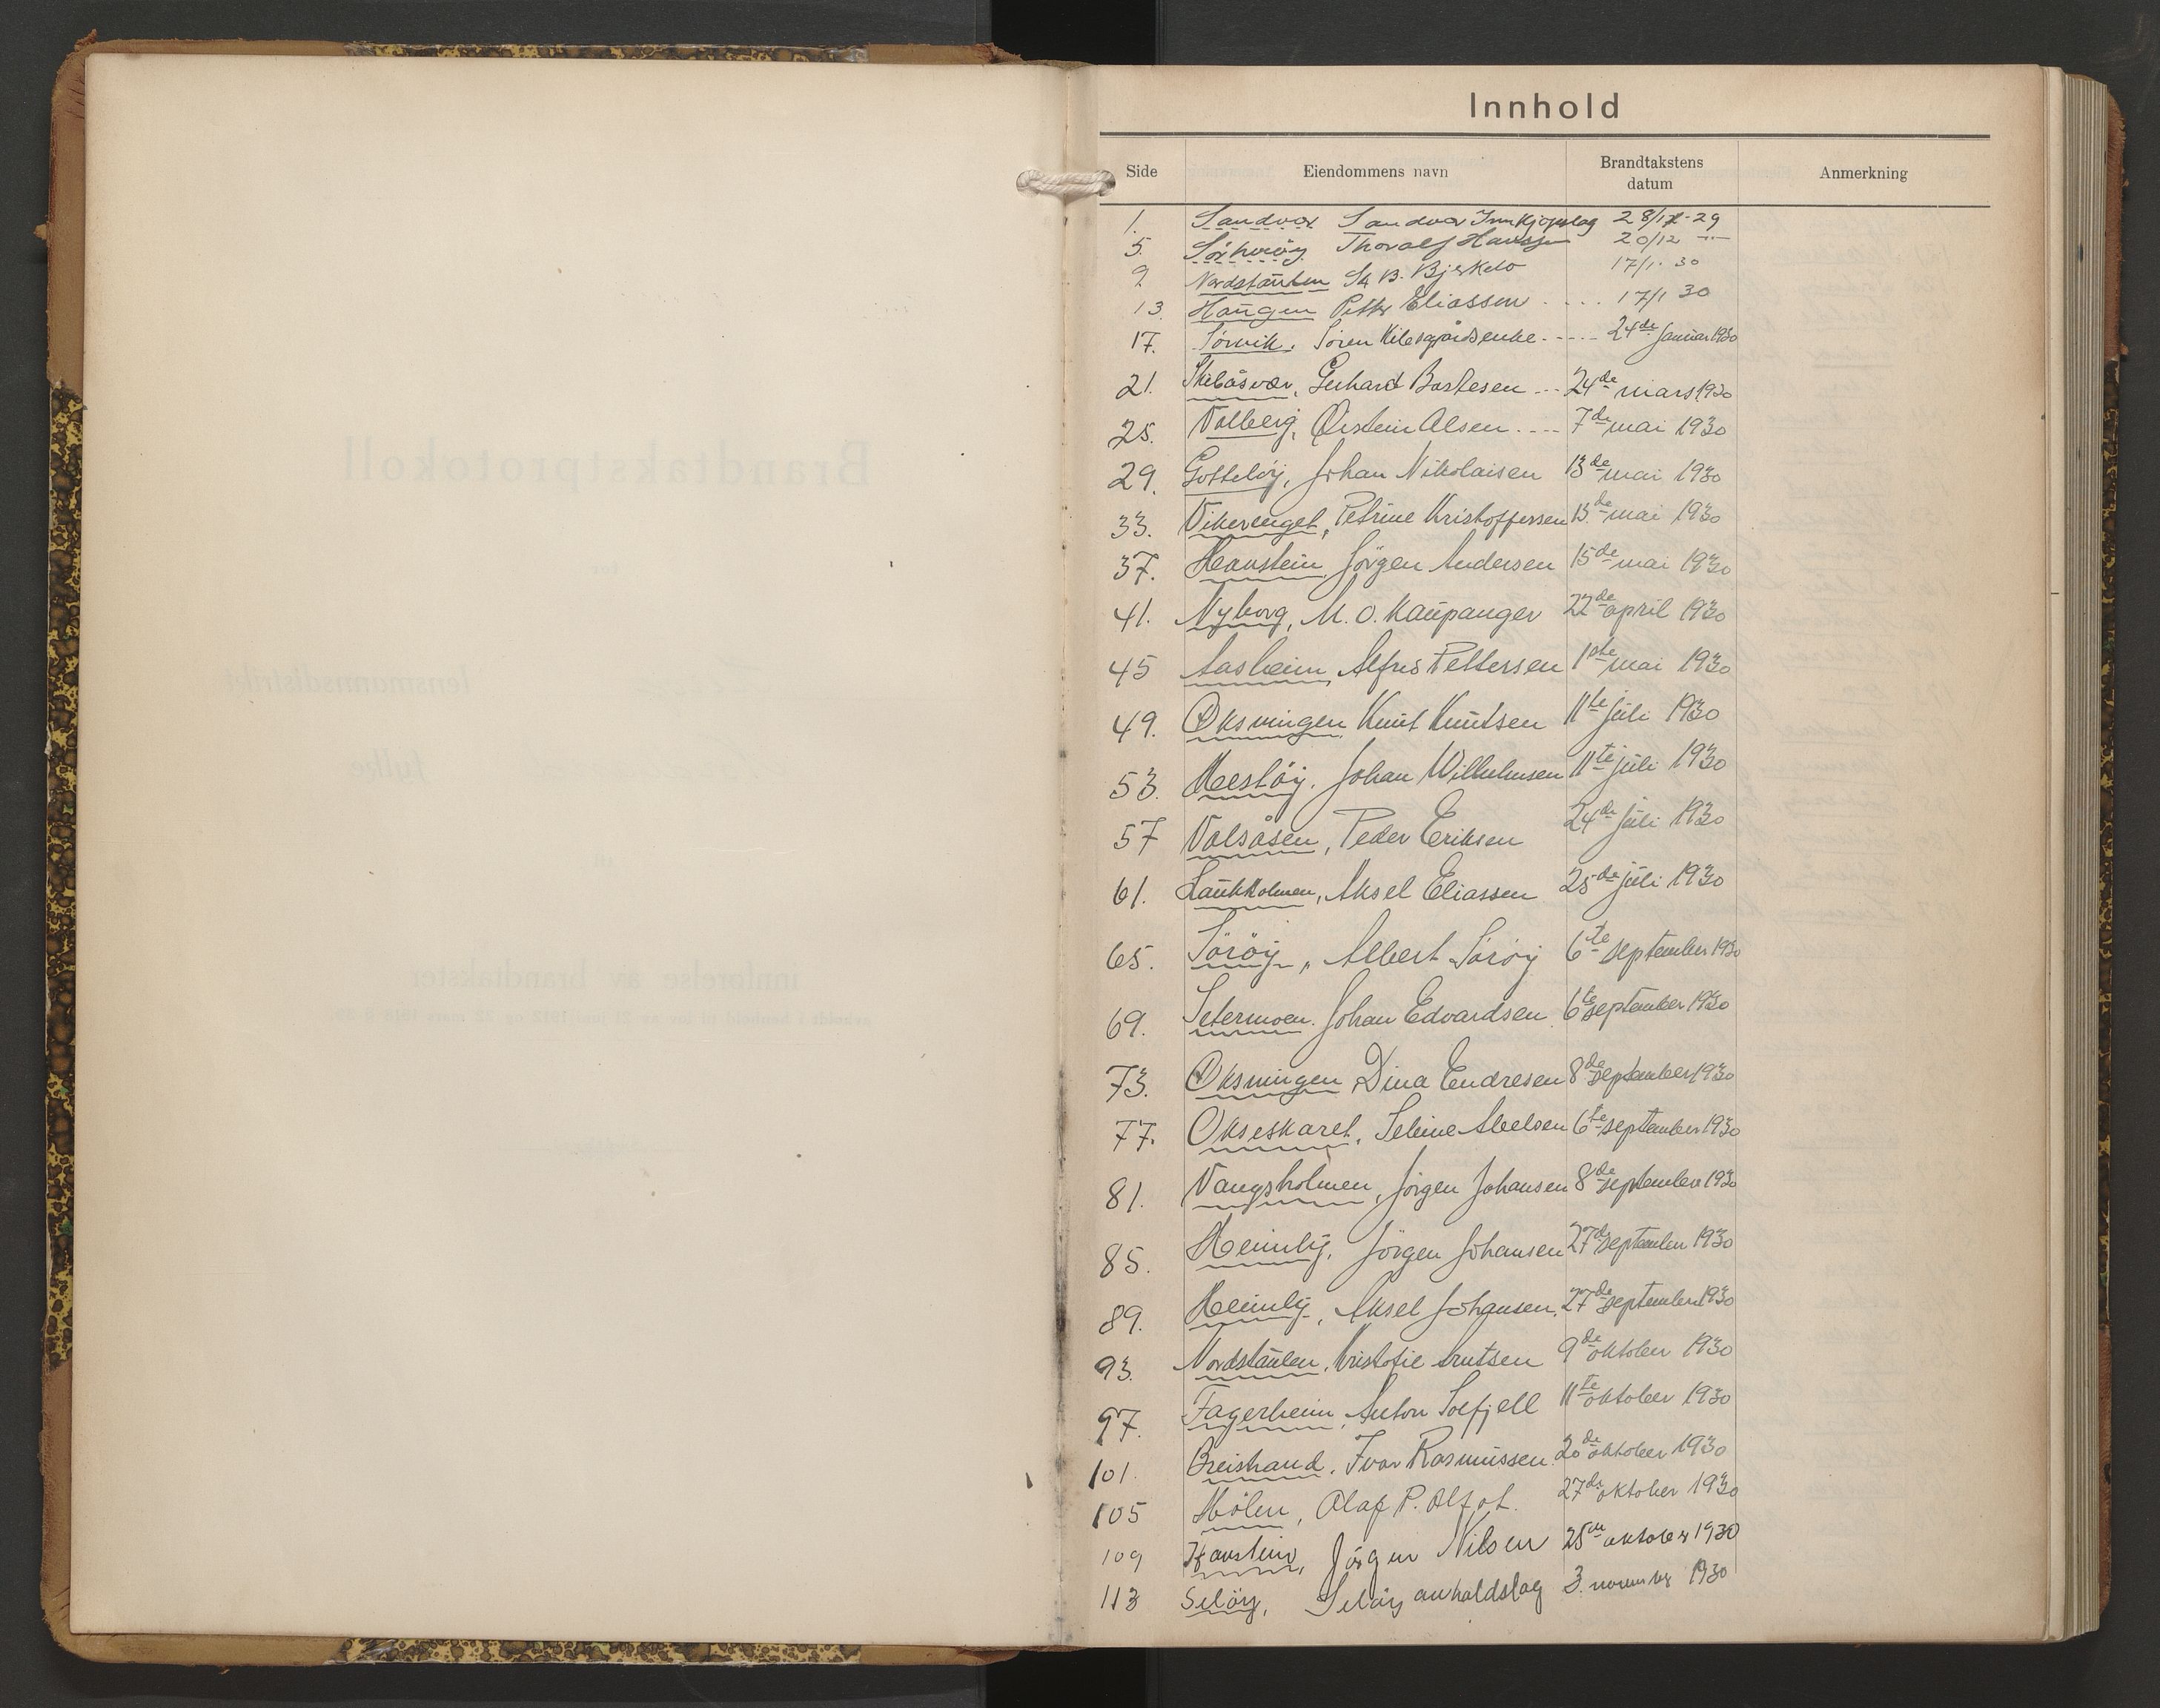 Innhold
Side Eiendommens navn Brandtakstens datum Anmerkning
1. Sandvær Sandvær Innkjøpslag 28/12-29
5. Thoralf Hanssen 20/12 -"-
9. Nordstaulen B. Bjerkebo 17/1. 30
13. Haugen Petter Eliassen .... 17/1 30
17. Sørvik. Søren ..... 24de Januar 1930
21. Skibåsvær, Gerhard Bastesen ... 24de mars 1930
25. Volberg, Øistein Olsen .... 7de mai 1930
29. Johan Nikolaisen 13de mai 1930
33. Vikerenget, Petrine Kristoffersen 13.de mai 1930
37. Haustein, Jörgen Andersen 15de mai 1930
41. Nyborg, M. O. Kaupanger 22de april 1930
45 Aasheim, Alfred Pettersen 1ste mai 1930
49. Øksningen Knut Knutsen 11te juli 1930
53. Hestöy. Johan Wilhelmsen 11te juli 1930
57 Valsåsen, Peder Eriksen 24de juli 1930
61. Laukholmen, Aksel Eliassen 25de juli 1930
65. Söröy, Albert Söröy 6te september 1930
69. Setermoen. Johan Edvardsen 6te september 1930
73. Øksningen Dina Endresen 8de september 1930
77. Okseskaret, Abelsen 6te september 1930
81. Vangsholmen, Jörgen Johansen 8de september 1930
85. Heimly, Jörgen Johansen 27de september 1930
89. Heimly, Aksel Johansen, 27de september 1930
93. Nordstaulen, Knutsen 9de oktober 1930
97. Fagerheim, Anton Solfjell 11te oktober 1930
101. Breistrand, Ivar Rasmussen 20de oktober 1930
105 Olaf P. 27de oktober 1930
109 Haustein, Jörgen Nilsen 25de oktober 1930
113 Selöy, Selöy avholdslag 3. november 1930